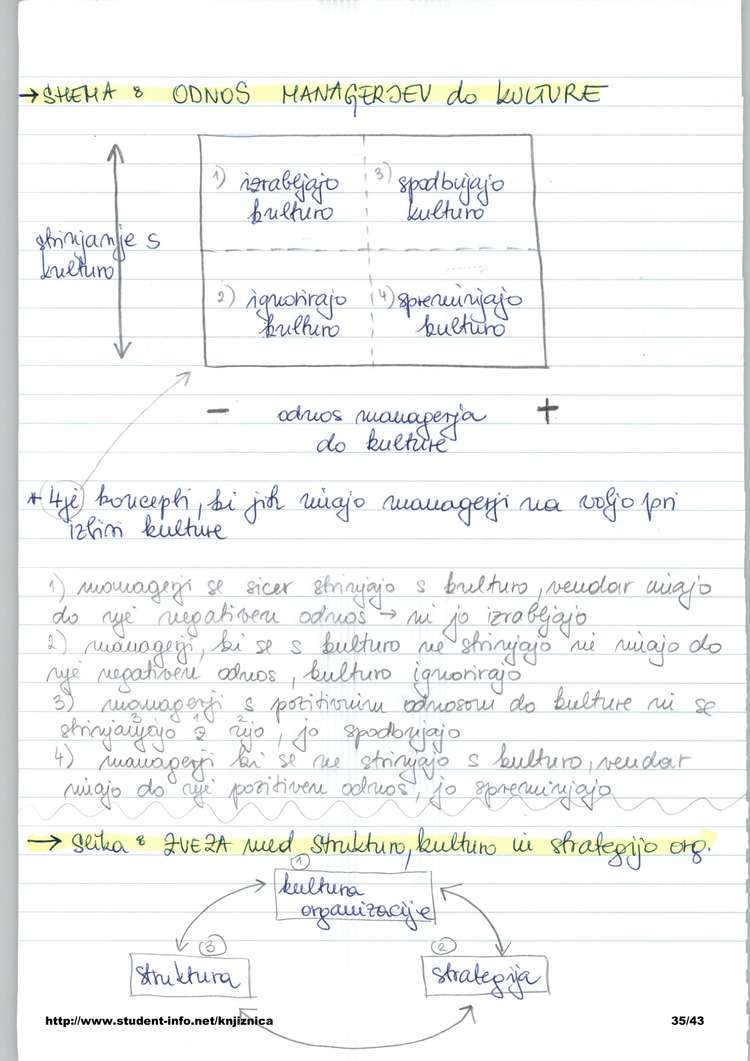 → SHEMA : ODNOS MANAGERJEV do KULTURE
1) izrabljajo
kulturo
3) spodbujajo
kulturo
strinjanje s
kulturo
2) ignorirajo
kulturo
4) spreminjajo
kulturo
− odnos managerja +
do kulture
* 4je koncepti, ki jih imajo managerji na voljo pri
izbiri kulture
1) managerji se sicer strinjajo s kulturo, vendar imajo
do nje negativen odnos → in jo izrabljajo
2) managerji, ki se s kulturo ne strinjajo in imajo do
nje negativen odnos, kulturo ignorirajo
3) managerji s pozitivnim odnosom do kulture in se
3 1 2
strinjajo z njo, jo spodbujajo
4) managerji ki se ne strinjajo s kulturo, vendar
imajo do nje pozitiven odnos, jo spreminjajo
→ Slika : ZVEZA med strukturo, kulturo in strategijo org.
1
kultura
organizacije
3
struktura
2
strategija
http://www.student-info.net/knjiznica
35/43